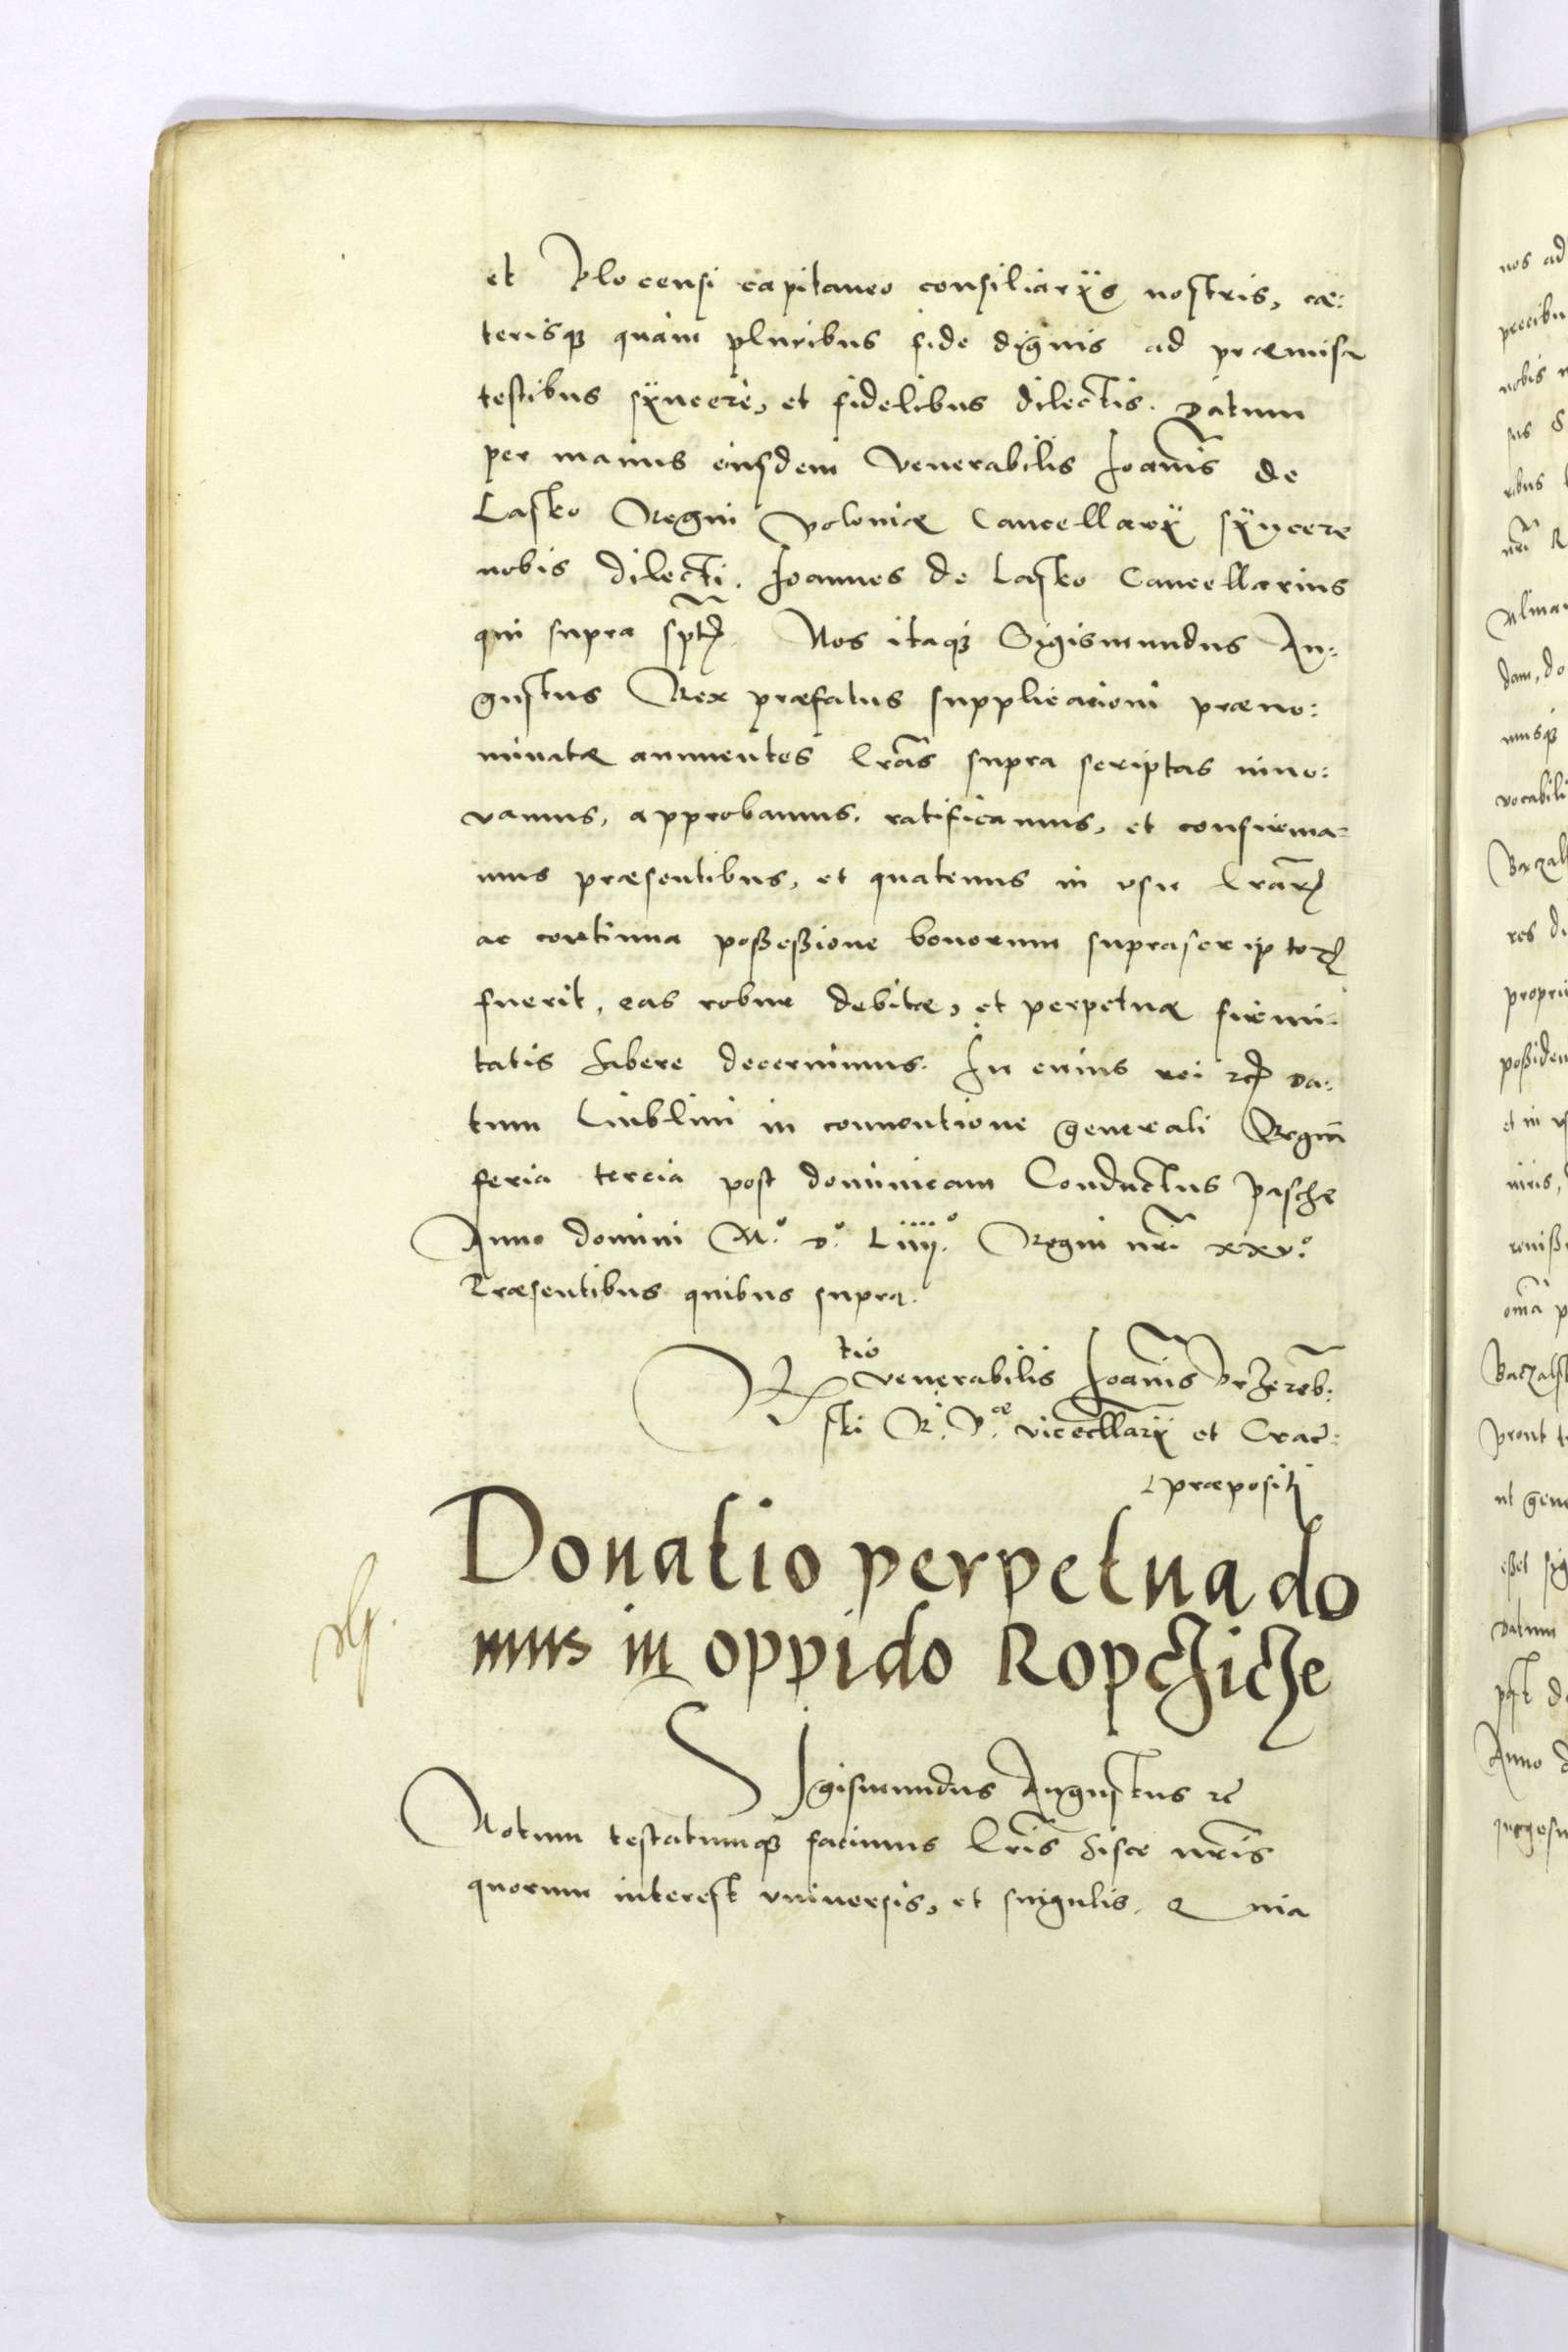 et Plocensi capitaneo consiliarÿs nostris, cæ:
terisqꝫ quàm pluribus fide dignis ad præmissa
testibus sÿncerè, et fidelibus dilectis. Datum
per manus eiusdem Venerabilis Joañis de
Lasko Regni Poloniæ Cancellarÿ sÿncere
nobis dilecti. Joannes de Lasko Cancellarius
qui supra sptꝫ. Nos itaqꝫ Sigismundus Au:
gustus Rex præfatus supplicationi præno:
minatæ annuentes lr̃as supra scriptas inno:
vamus, approbamus, ratificamus, et confirma:
mus præsentibus, et quatenus in vsu lr̃arꝫ
ac continua possessione bonorum suprascriptorꝫ
fuerit, eas robur debitæ, et perpetuæ firmi:
tatis habere decernimus. In cuius rei Da:
tum Liublini in conventione generali Regni
feria tercia post dominicam Conductus Pasche
Anno domini M.º D.º Liiij.º Regni nr̃i xxv.º
Præsentibus quibus supra.
Rtio venerabilis Joañis Przeremb:
ski R. P.æ vicecllarÿ et Crac:
præpositi
Donatio perpetua do
mus in oppido Ropchiche
Sigismundus Augustus rc̃
Notum testatumqꝫ facimus lr̃is hisce nr̃is
quorum interest vniuersis, et singulis. Quia
nos ad
precibu
nobis
dam, do
musqꝫ
vocabuli
res di
propri
possiden
Prout
ut gene
esset sig
Datum
post d
Anno d